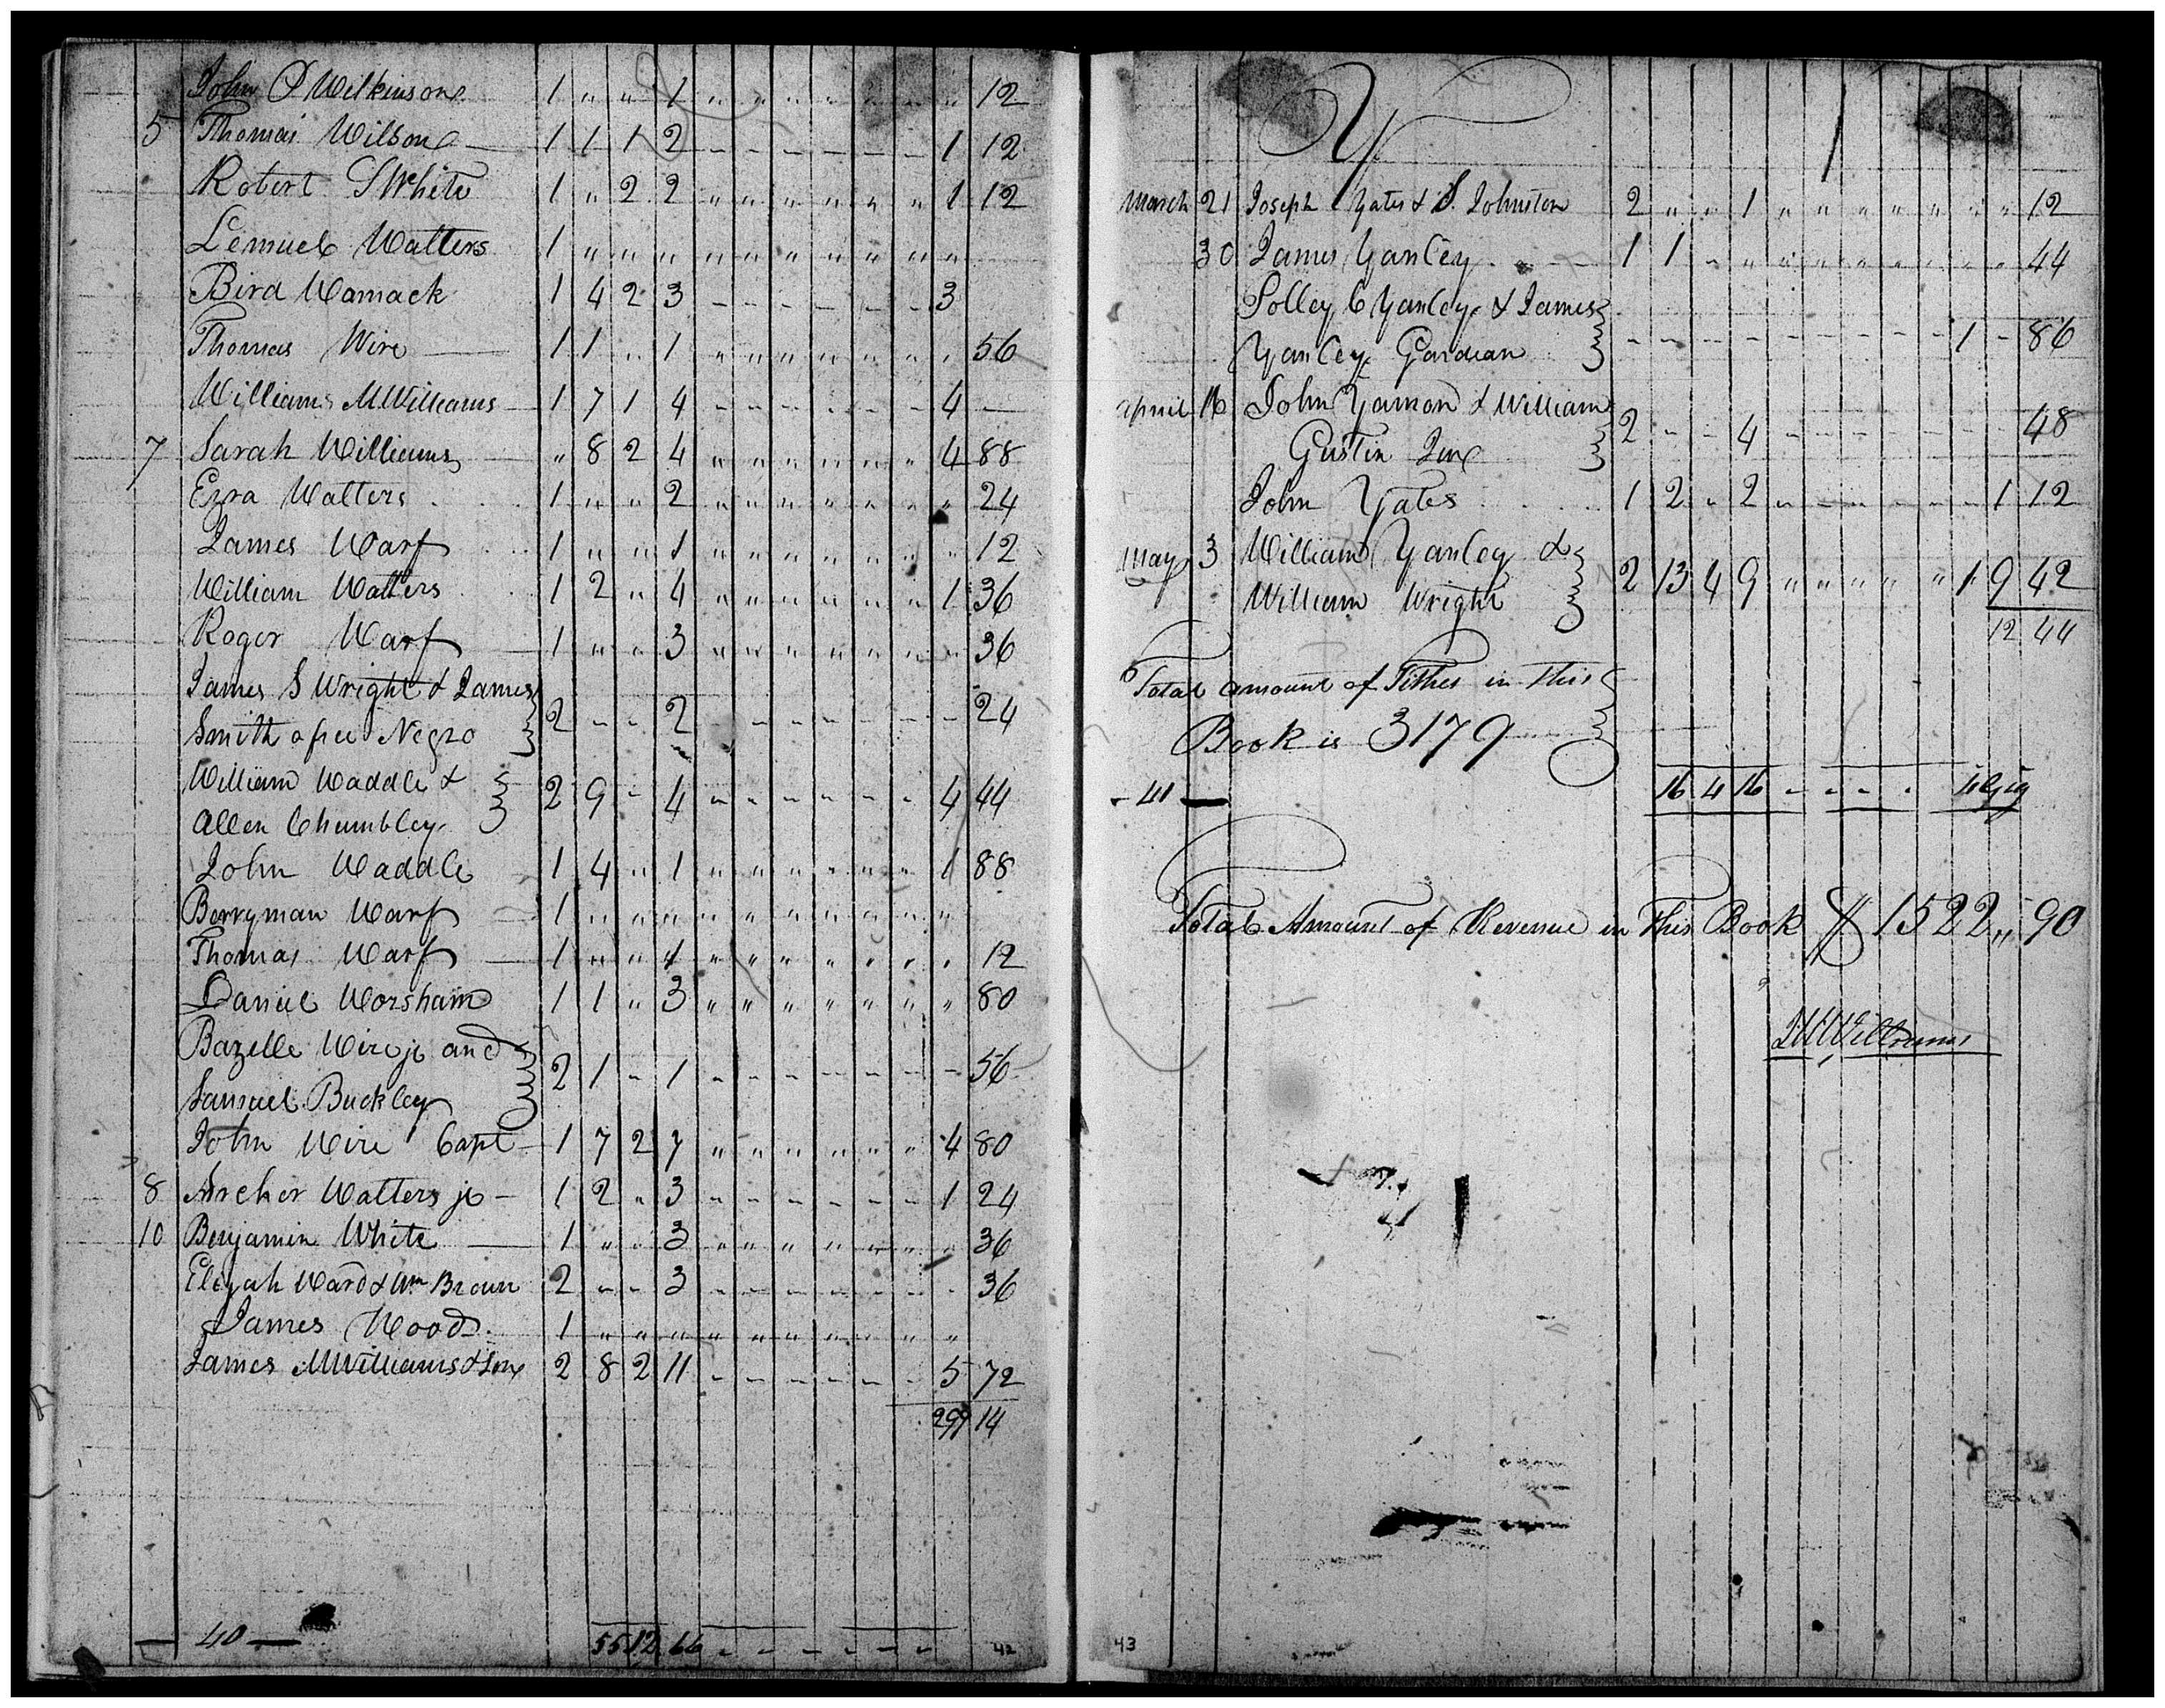 John P Wilkinson 1 " " 1 " " " " " " " 12
5 Thomas Wilson 1 1 1 2 - - - - - - 1 12
Robert S White 1 " 2 2 " " " " " " 1 12
Lemuel Watters 1 " " " " " " " " " "
Bird Womack 1 4 2 3 - - - - - - 3
Thomas Wire 1 1 " 1 " " " " " " " 56
William M Williams 1 7 1 4 - - - - - - 4 —
7 Sarah Williams " 8 2 4 " " " " " " 4 88
Ezra Watters 1 " " 2 " " " " " " " 24
James Warf 1 " " 1 " " " " " " " 12
William Watters 1 2 " 4 " " " " " " 1 36
Roger Warf 1 " " 3 " " " " " " " 36
James S Wright & James
Smith a free Negro 2 - - 2 - - - - - - - 24
William Waddle &
Allen Chumbley 2 9 - 4 - - - - - - 4 44
John Waddle 1 4 " 1 " " " " " " 1 88
Berryman Warf 1 " " " " " " " " " "
Thomas Warf 1 " " 1 " " " " " " " 12
Daniel Worsham 1 1 " 3 " " " " " " " 80
Bazelle Wire jr and
Samuel Buckley 2 1 - 1 - - - - - - - 56
John Wire Capt 1 7 2 7 " " " " " " 4 80
8 Archer Watters jr 1 2 " 3 - - - - - - 1 24
10 Benjamin White 1 " " 3 " " " " " " " 36
Elijah Ward & Wm Brown 2 - - 3 - - - - - - - 36
James Wood 1 " " " " " " " " " "
James M Williams & Son 2 8 2 11 - - - - - - 5 72
14
— 40 — 55 12 66 - - - - - -
42
Y
March 21 Joseph Yates & S. Johnston 2 " " 1 " " " " " " " 12
30 James Yanley 1 1 " " " " " " " " " 44
Polley C Yanley & James
Yanley Gardian - - - - - - - - - 1 - 86
April 16 John Yamon & William
Gustin Jun 2 - - 4 - - - - - - - 48
John Yates 1 2 " 2 - - - - - - 1 12
May 3 William Yanley &
William Wright 2 13 4 9 " " " " " 1 9 42
12 44
Total amount of Tithes in this
Book is 3179
- 41 — 16 4 16 - - - -
Total Amount of Revenue in This Book $ 1522 " 90
43